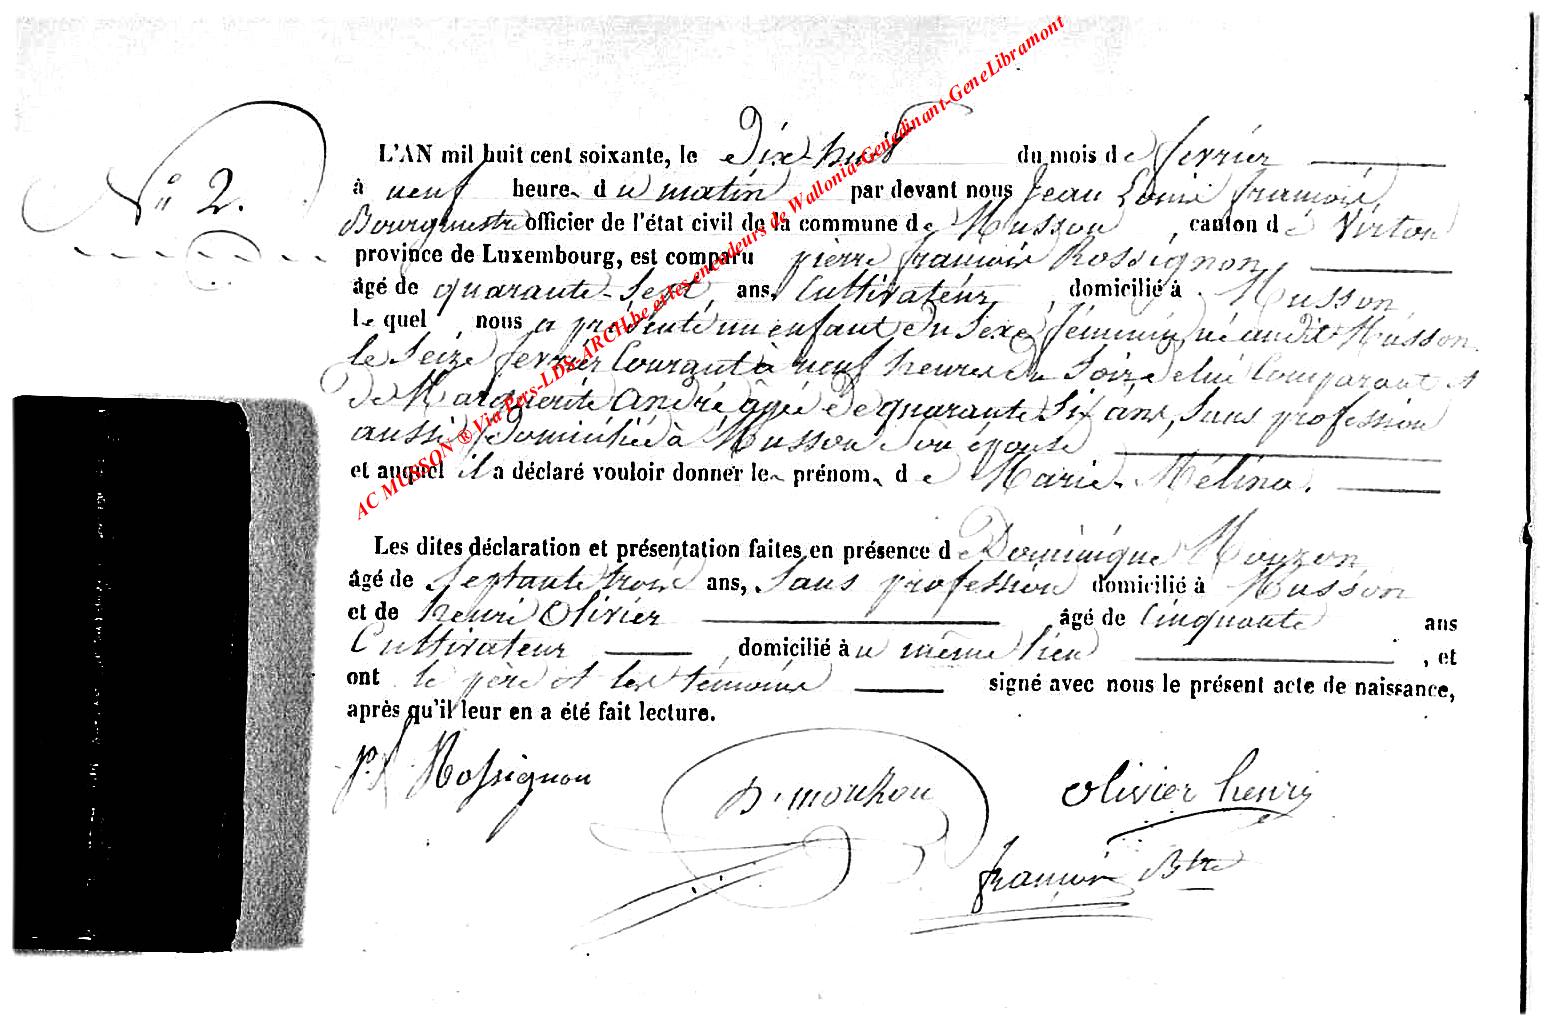 N° 2.
L'AN mil huit cent soixante, le Dix-huit du mois de février
à neuf heures du matin par devant nous Jean Louis François,
Bourgmestre officier de l'état civil de la commune de Musson, canton de Virton
province de Luxembourg, est comparu pierre françois Rossignon,
âgé de quarante-sept ans, Cultivateur, domicilié à Musson,
lequel nous a présenté un enfant du sexe féminin, né audit Musson
le seize février Courant à neuf heures du Soir, de lui Comparant et
De Marguerite André âgée de quarante six ans, sans profession
aussi domiciliée à Musson son épouse
et auquel il a déclaré vouloir donner les prénoms de Marie-Mélina.
Les dites déclaration et présentation faites en présence de Dominique Mouzon
âgé de Septante trois ans, Sans profession domicilié à Musson
et de henri Olivier âgé de Cinquante ans
Cultivateur domicilié au même lieu, et
ont le père et les témoins signé avec nous le présent acte de naissance,
après qu'il leur en a été fait lecture.
Rossignon
D. mouzon
Olivier henri
françois Btre
AC MUSSON ® Via Pers-LDS-ARCH.be et les encodeurs de Wallonia-Genedinant-GeneLibramont